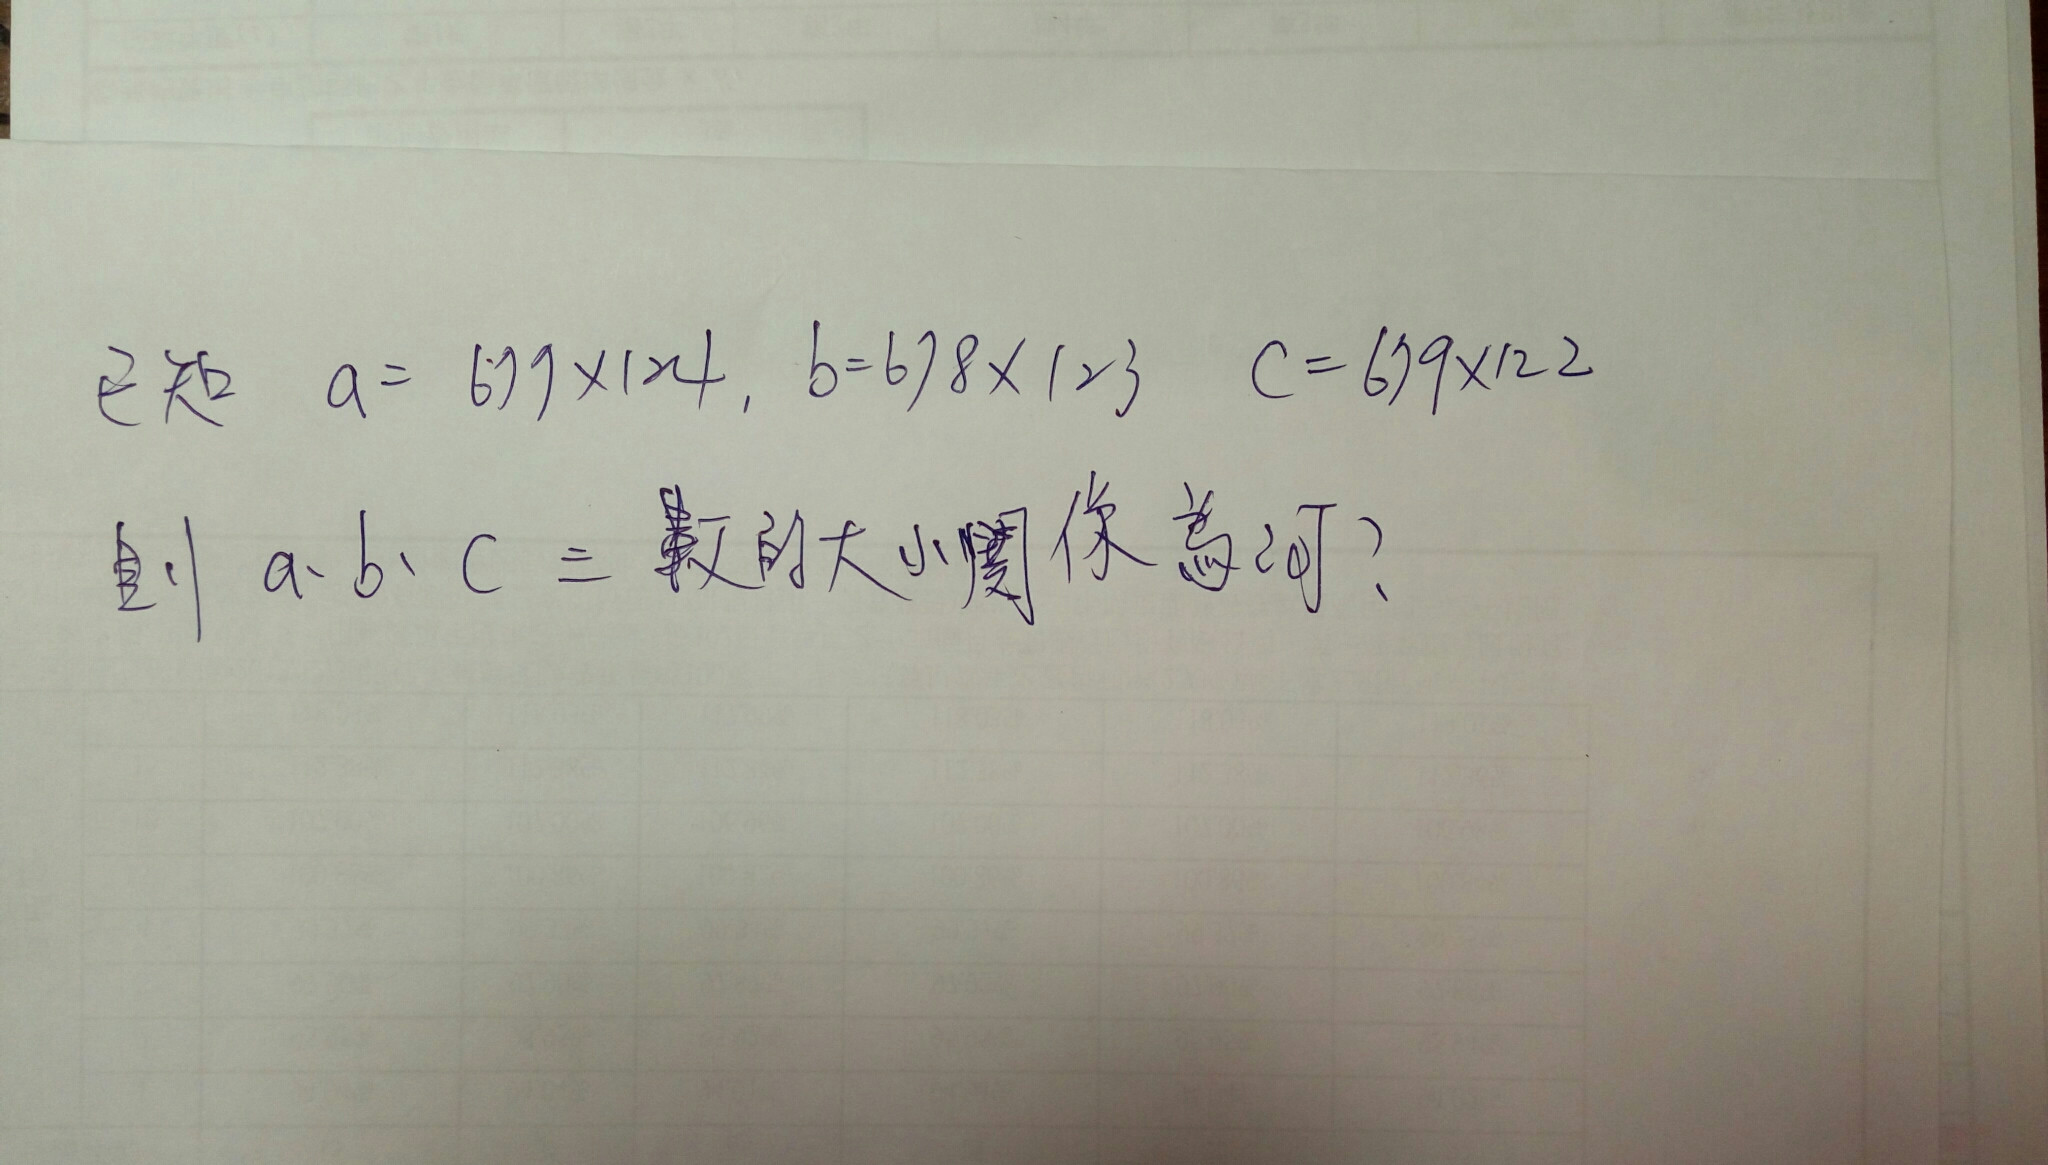 已知 a = 677×124, b=678×123 c=679×122
則 a、b、c 三數的大小關係為何?